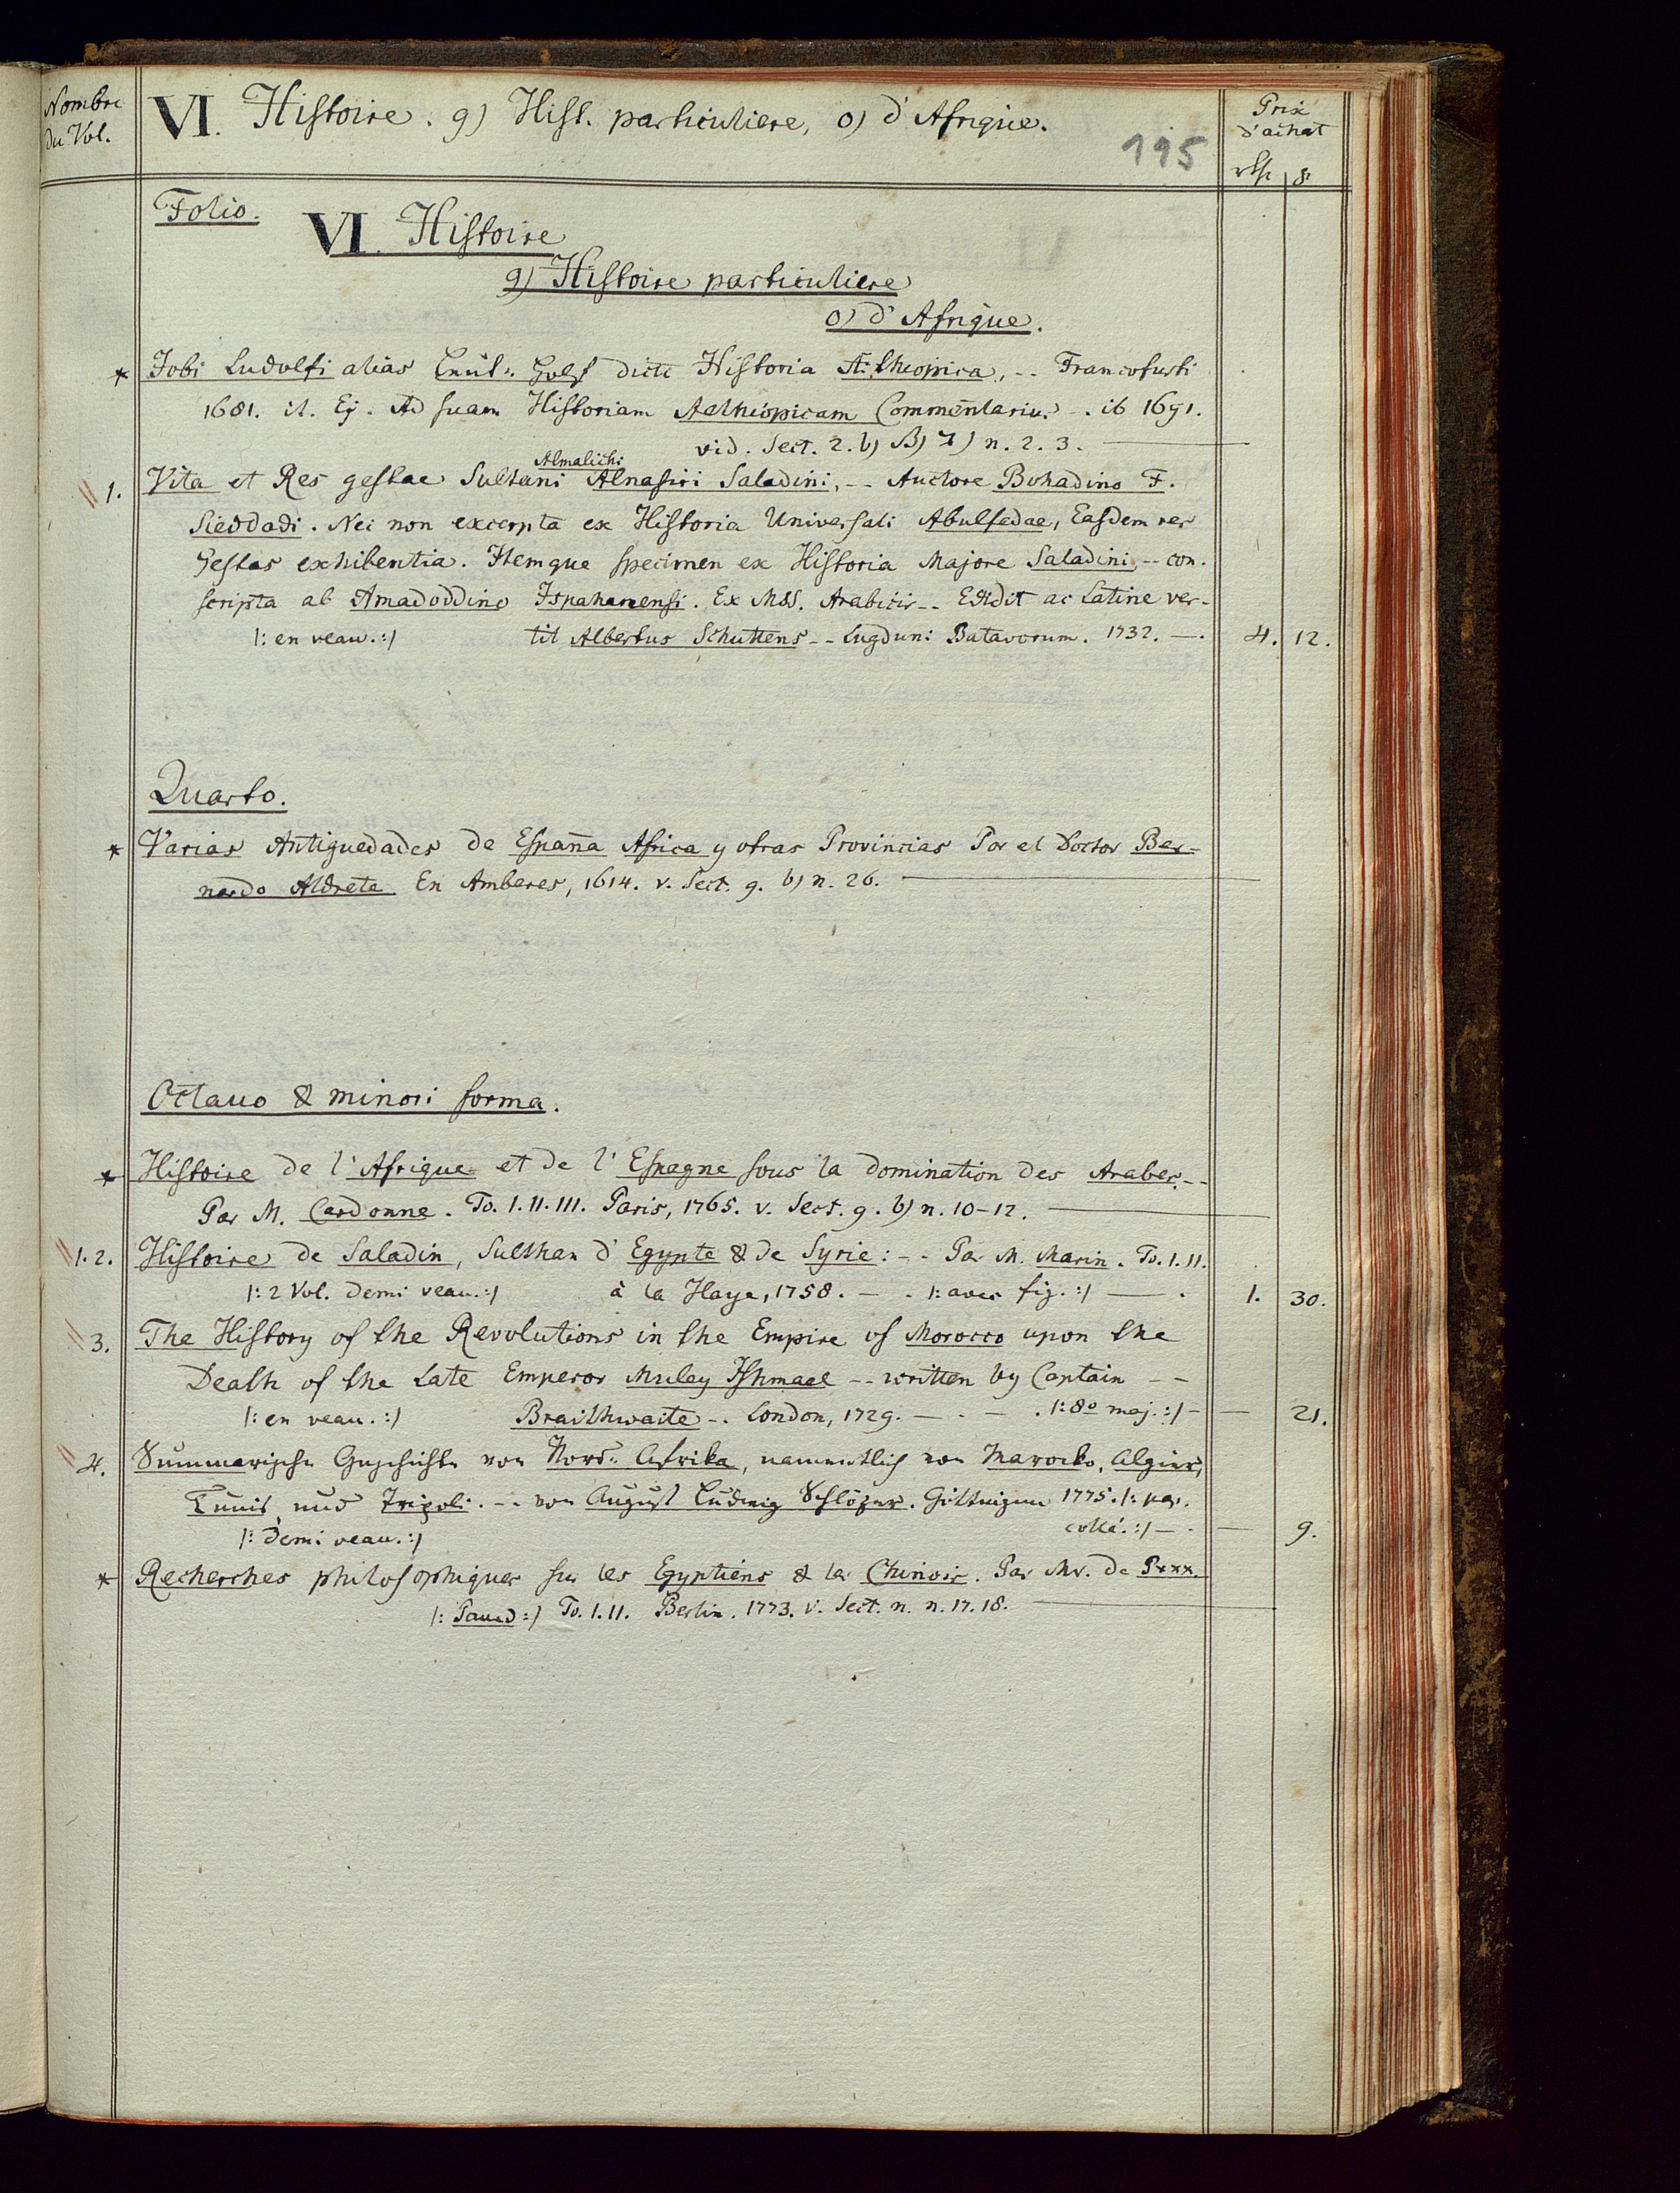 Nombre
du Vol.
VI. Histoire. g) Hist. particuliere, o) d'Afrique.
195
Prix
d'achat
rth g
Folio.
VI. Histoire
g) Histoire particuliere
o) d'Afrique.
* Jobi Ludolfi alias Leut= Holf dicti Historia Aethiopica, -- Francofurti
1681. it. Ej. Ad suam Historiam Aethiopicam Commentarius -. ib 1691.
vid. Sect. 2. b) n. 2. 3.
Almalichi
1. Vita et Res gestae Sultani Alnasiri Saladini, -- Auctore Bohadino F.
Sieddadi. Nec non excerpta ex Historia Universali Abulfedae, Easdem res
gestas exhibentia. Itemque specimen ex Historia Majore Saladini, -- con-
scripta ab Amadoddino Ispahanensi. Ex MSS. Arabicis -- Edidit ac Latine ver-
|: en veau. :| tit Albertus Schultens -- Lugduni Batavorum. 1732. —. 4. 12.
Quarto.
* Varias Antiguedades de España Africa y otras Provincias Por el Doctor Ber=
nardo Aldrete En Amberes, 1614. v. Sect. g. b) n. 26.
Octavo & minori forma.
* Histoire de l'Afrique et de l'Espagne sous la domination des Arabes. --
Par M. Cardonne. To. I. II. III. Paris, 1765. v. Sect. g. b) n. 10-12.
1. 2. Histoire de Saladin, Sulthan d'Egypte & de Syrie: -- Par M. Marin. To. I. II.
|: 2 Vol. demi veau. :| à la Haye, 1758. — . |: avec fig. :| — . 1. 30.
3. The History of the Revolutions in the Empire of Morocco upon the
Death of the Late Emperor Muley Ishmael -- written by Captain --
|: en veau. :| Braithwaite -. London, 1729. — . — . |: 8º maj. :| — — 21.
4. Summarische Geschichte von Nord= Afrika, namentlich von Marocko, Algier,
Tunis, und Tripoli. -- von August Ludwig Schlözer. Göttingen 1775. |: pap.
|: demi veau. :| collé. :| — . — 9.
* Recherches philosophiques sur les Egyptiens & les Chinois. Par Mr. de P***.
|: Pauw :| To. I. II. Berlin. 1773. v. Sect. n. n. 17. 18.